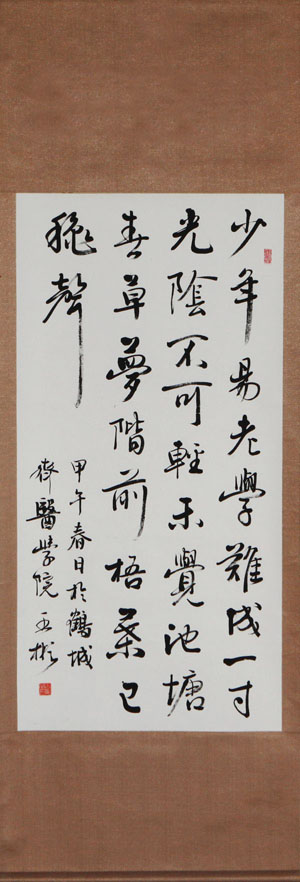 少年易老學難成一寸
光陰不可輕未覺池塘
春草夢階前梧葉已
秋聲
甲午春日於鶴城
齊醫學院王彬